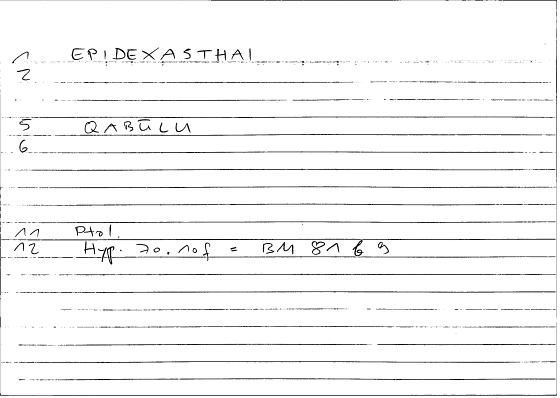 1 EPIDEXASTHAI
2
5 QABŪLU
6
11 Ptol.
12 Hyp. 70.10f = BM 81 b 9